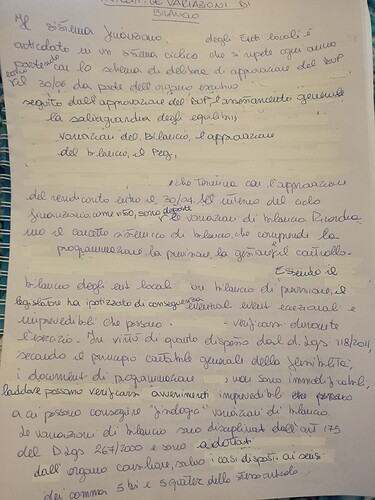 VARIAZIONI DI
BILANCIO
Il sistema finanziario degli Enti locali è
articolato in un sistema ciclico che si ripete ogni anno
partendo con lo schema di delibera di approvazione del DUP
del 30/06 da parte dell'organo esecutivo
seguito dall'approvazione del DUP, l'assestamento generale
la salvaguardia degli equilibri,
variazioni del Bilancio, l'approvazione
del bilancio, il PEG,
che termina con l'approvazione
del rendiconto entro il 30/04. All'interno del ciclo
finanziario, come visto, sono le variazioni di bilancio. Ricordia
mo il carattere sistemico di bilancio, che comprende la
programmazione, la previsione, la gestione e il controllo.
Essendo il
bilancio degli enti locali un bilancio di previsione, il
legislatore ha ipotizzato di conseguenza eventuali eventi eccezionali e
imprevedibili che possono verificarsi durante
l'esercizio. In virtù di quanto disposto dal d.lgs 118/2011,
secondo il principio contabile generale della flessibilità,
i documenti di programmazione non sono immodificabili,
laddove possono verificarsi avvenimenti imprevedibili che possono
a cui possono conseguire "fisiologiche" variazioni di bilancio.
Le variazioni di bilancio sono disciplinate dall'art 175
del D.lgs 267/2000 e sono adottati
dall'organo consiliare, salvo i casi disposti ai sensi
dei commi 5 bis e 5 quater dello stesso articolo.